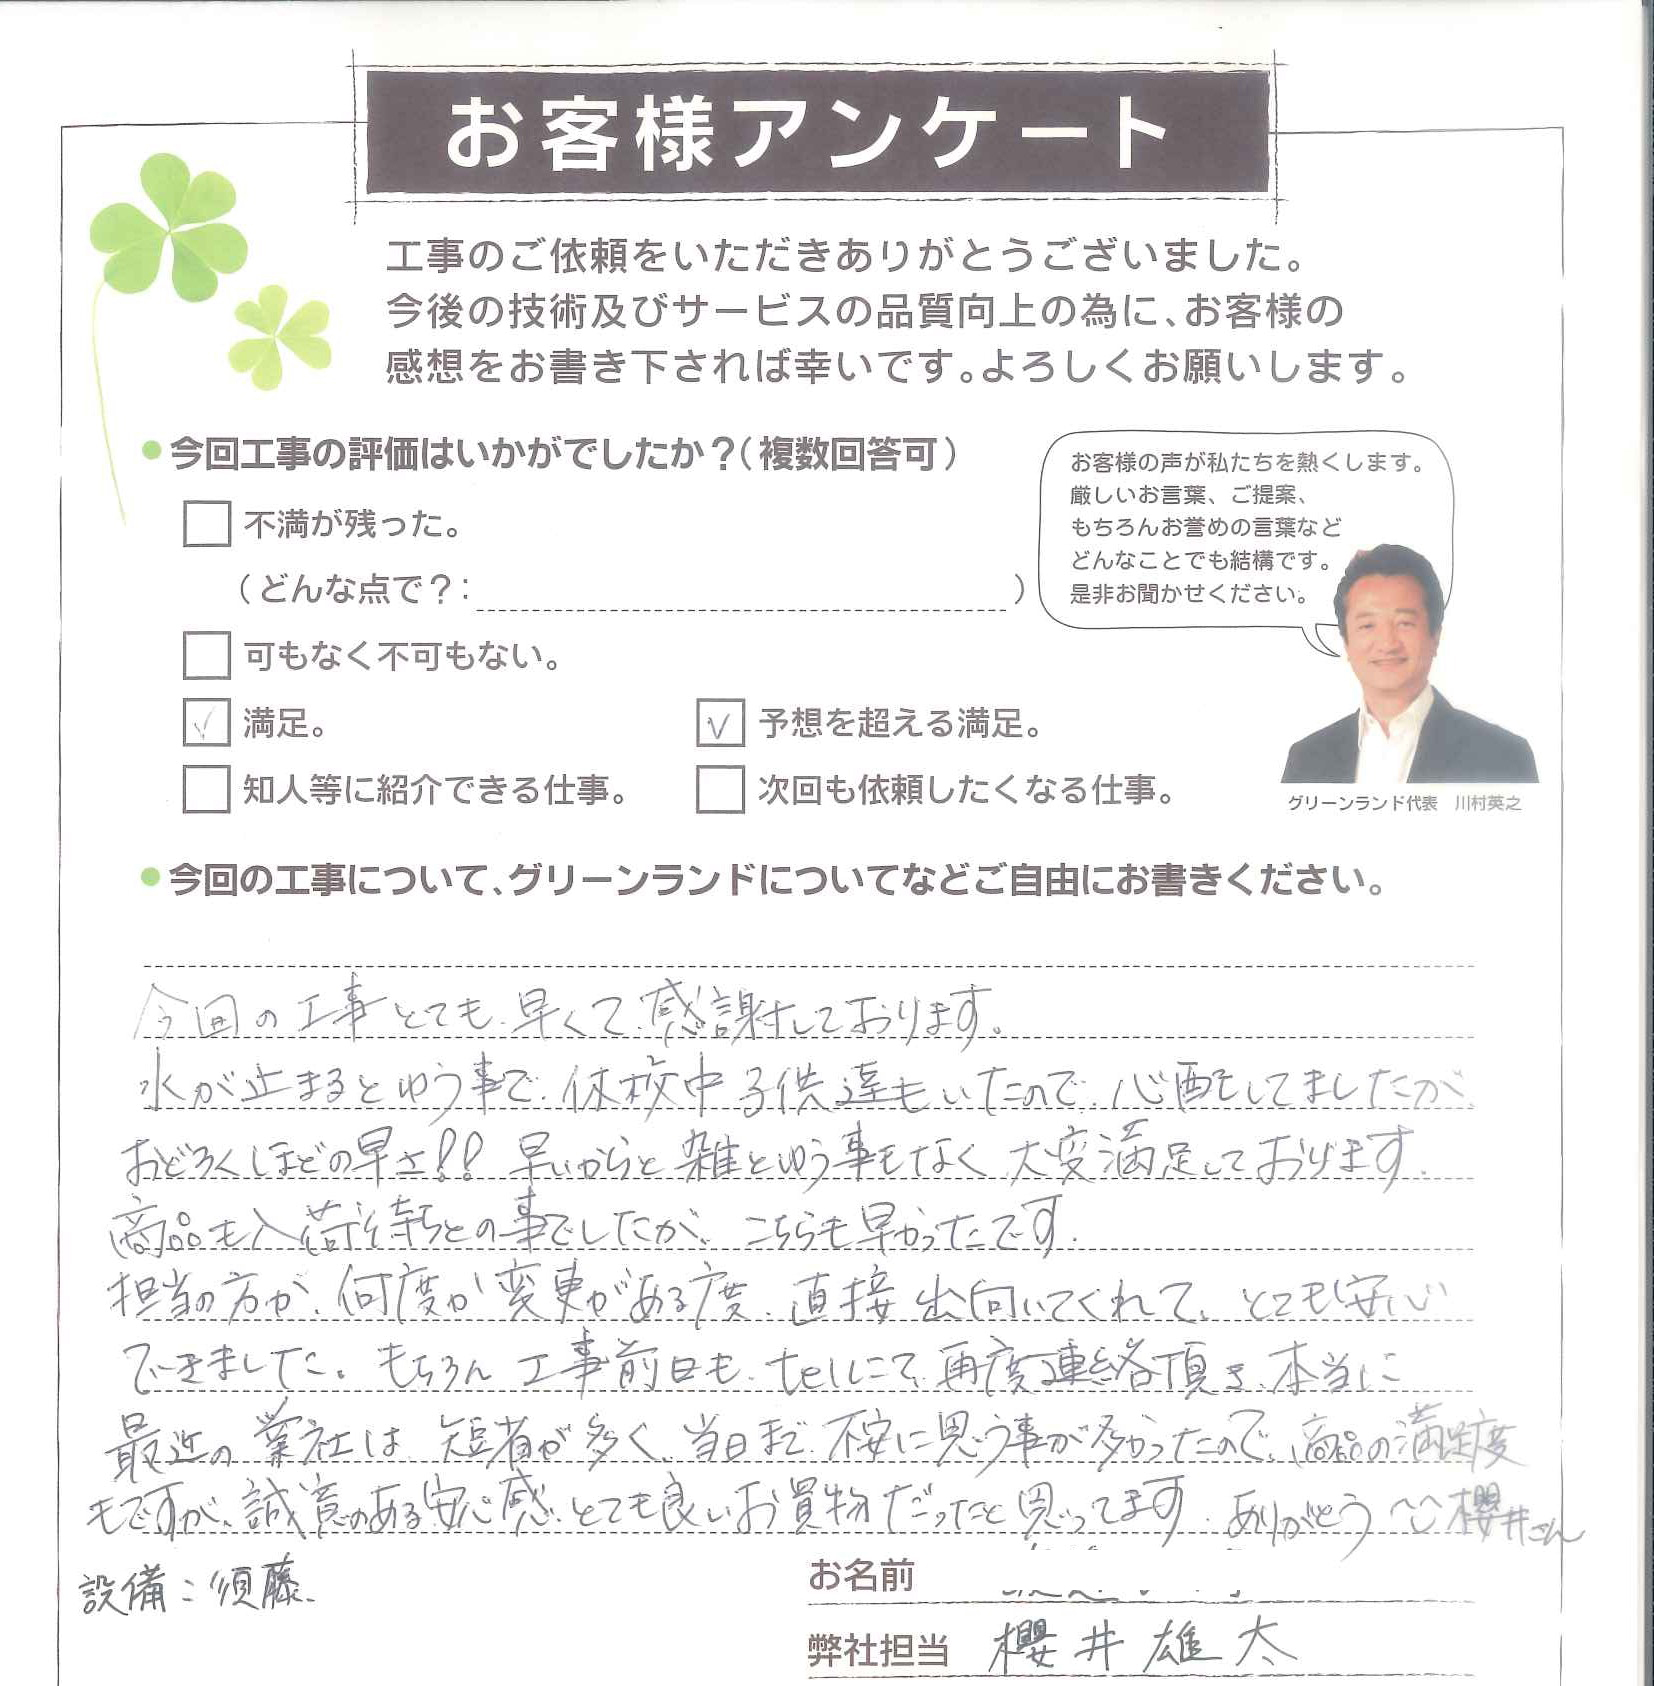 お客様アンケート
工事のご依頼をいただきありがとうございました。
今後の技術及びサービスの品質向上の為に、お客様の
感想をお書き下されば幸いです。よろしくお願いします。
今回工事の評価はいかがでしたか？（複数回答可）
不満が残った。
（どんな点で？：                ）
可もなく不可もない。
満足。
予想を超える満足。
知人等に紹介できる仕事。
次回も依頼したくなる仕事。
お客様の声が私たちを熱くします。
厳しいお言葉、ご提案、
もちろんお誉めの言葉など
どんなことでも結構です。
是非お聞かせください。
グリーンランド代表　川村英之
今回の工事について、グリーンランドについてなどご自由にお書きください。
今回の工事とても早くて、感謝しております。
水が止まるとゆう事で、休校中子供達もいたので、心配をしてましたが、
おどろくほどの早さ!! 早いからと雑とゆう事もなく、大変満足しております。
商品も入荷待ちとの事でしたが、こちらも早かったです。
担当の方が、何度か変更がある度、直接出向いてくれて、とても安心
できました。もちろん工事前日も、telにて再度連絡頂き、本当に
最近の業社は、短省が多く、当日まで不安に思う事が多かったので、商品の満足度
もですが、誠意のある安心感、とても良いお買物だったと思ってます。ありがとう 櫻井さん
設備：須藤.
お名前
弊社担当 櫻井雄太